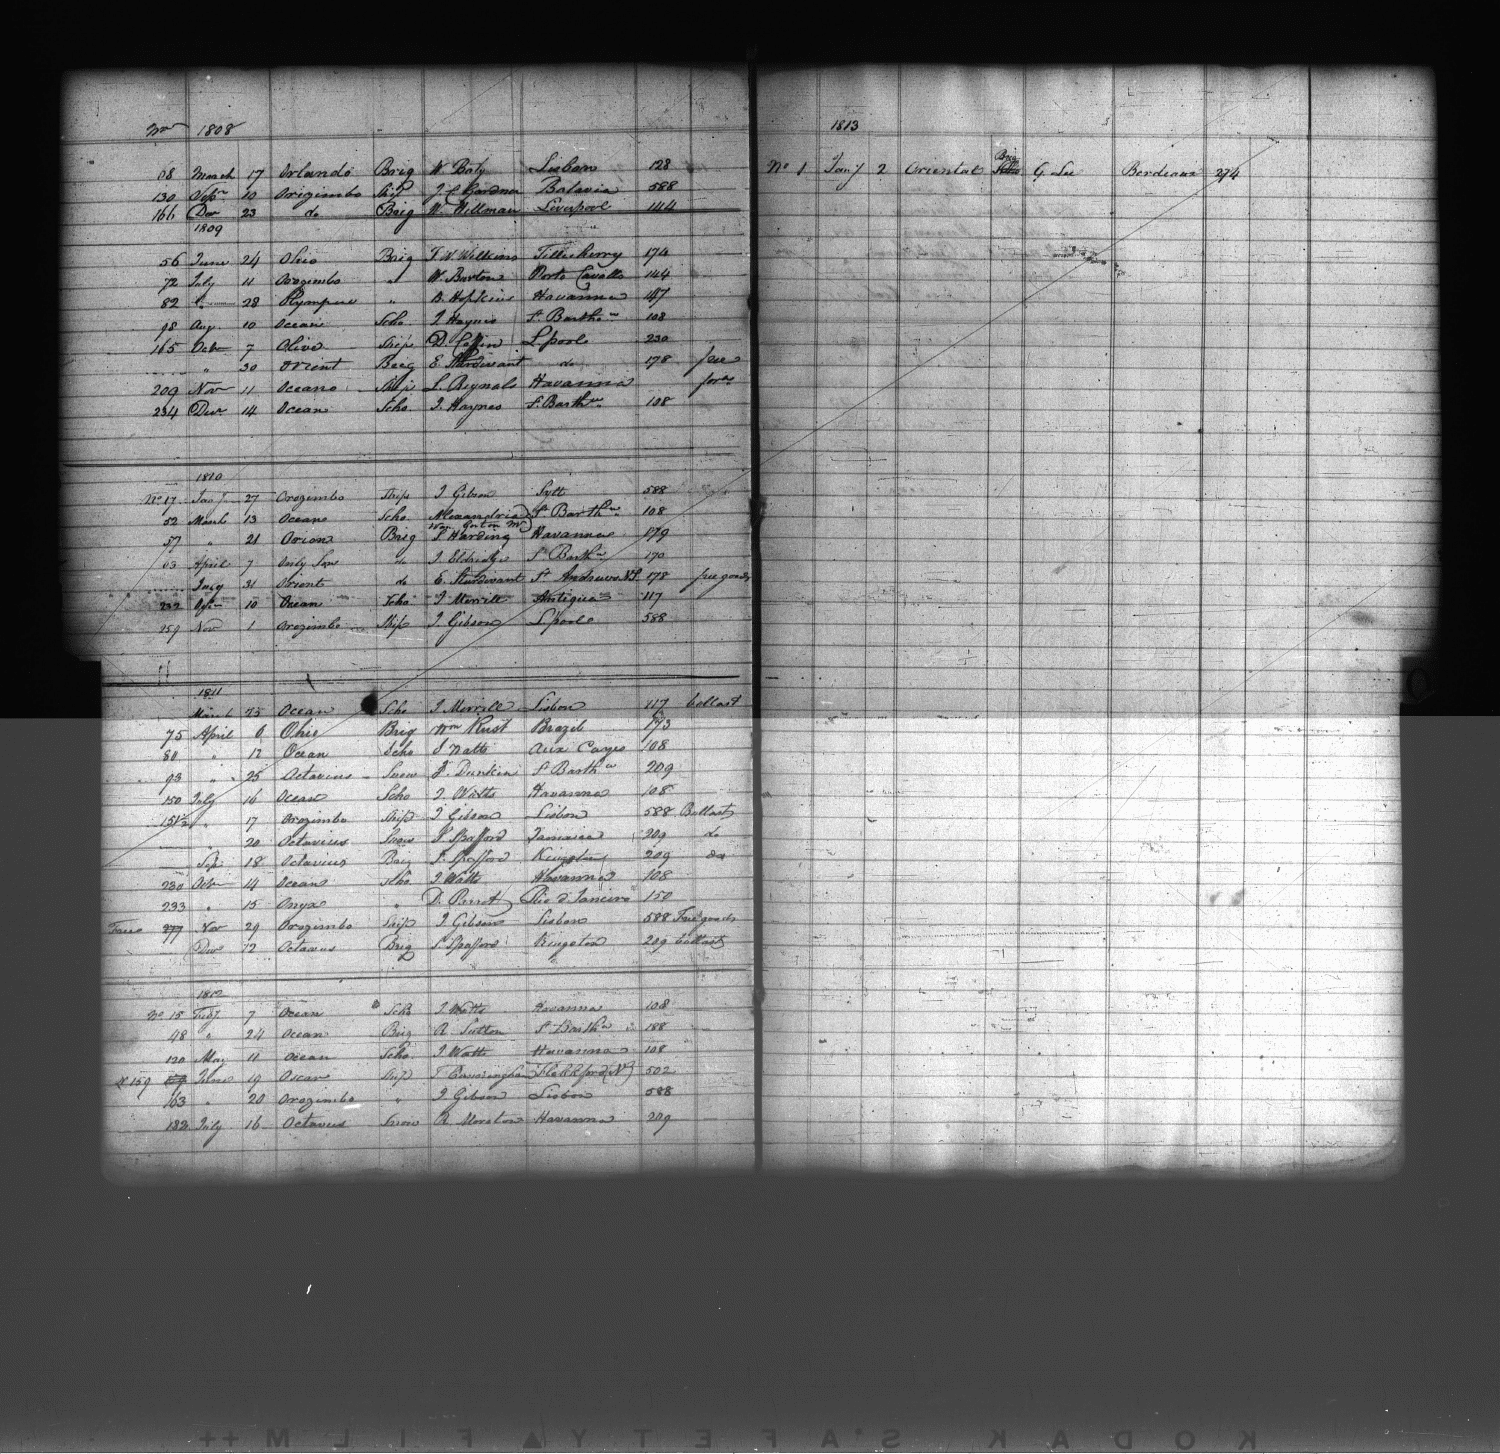 No 1808
68 March 17 Orlando Brig W. Baty Lisbon 128
130 Sepr 10 Origimbo Ship J C Gardner Batavia 588
166 Decr 23 do Brig W. Willman Liverpool 144
1809
56 June 24 Ohio Brig T W Wilkins Tillicherry 174
72 July 11 Orozimbo " W. Burton Porto Cavallo 144
82 " 28 Olympus " B. Hopkins Havanna 147
98 Aug 10 Ocean Scho. J Haynes St Bartho 108
165 Octr 7 Olive Ship D. Coffin Lpool 230
" 30 Orient Brig E Sturdivant do 178 free
209 Nov 11 Oceano Ship L. Reynals Havanna forn
234 Decr 14 Ocean Scho. J. Haynes St Barths 108
1810
No 17 Jany 27 Orozimbo Ship J Gibson Sylt 588
52 March 13 Ocean Scho Alexandria St Barths 108
Wm Gorton Mr
57 " 21 Orion Brig S Harding Havanna 179
63 April 7 Only Son do J Eldridge St Barths 170
July 31 Orient do E. Sturdivant St Andrews N.S. 178 free goods
232 10 Ocean Scho J Merrill Antigua 117
259 Nov 1 Orozimbo Ship J Gibson Lpool 588
1811
March 25 Ocean Scho J Merrill Lisbon 117 ballast
75 April 6 Ohio Brig Wm Rust Brazil 173
80 " 12 Ocean Scho J Watts Aux Cayes 108
93 " 25 Octavius Snow F. Dunkin St Barths 209
150 July 16 Ocean Scho J Watts Havanna 108
151½ " 17 Orozimbo Ship J Gibson Lisbon 588 Ballast
" 20 Octavius Snow S Spafford Jamaica 209 do
Sep 18 Octavius Brig S. Spafford Kingston 209 do
230 Octr 14 Ocean Scho J Watts Havanna 108
233 " 15 Onyx " D. Perrot Rio d Janeiro 150
Free 277 Nov 29 Orozimbo Ship J Gibson Lisbon 588 Free goods
Decr 12 Octavus Brig S. Spafford Kingston 209 ballast
1812
No 15 Feby 7 Ocean Scho J Watts Havanna 108
48 " 24 Ocean Brig R Sutton St Barths 188
120 May 11 Ocean Scho. J Watts Havanna 108
No 159 June 19 Oscar Ship T Cunningham Flekkford (N) 502
163 " 20 Orozimbo " J Gibson Lisbon 588
182 July 16 Octavus Snow R. Morston Havanna 209
1813
No 1 Jany 2 Oriental Brig G. Lee Bordeaux 274
KODAK SAFETY FILM ++